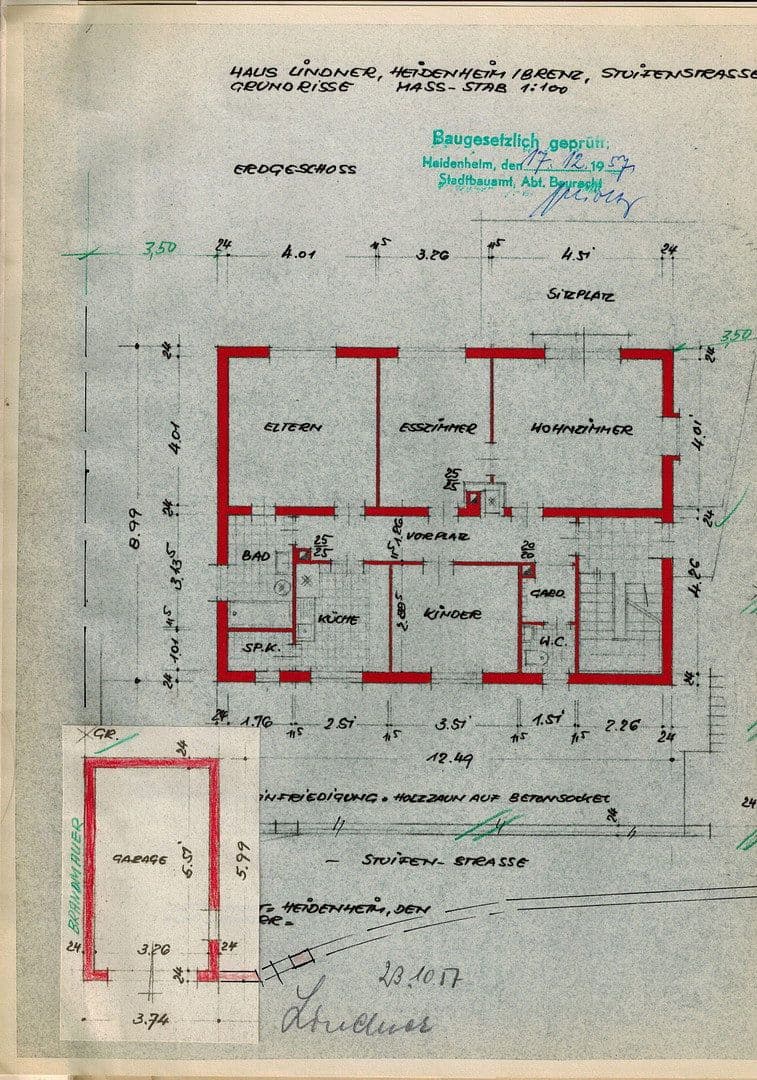 HAUS LINDNER, HEIDENHEIM/BRENZ, STUIFENSTRASSE
GRUNDRISSE MASS-STAB 1:100
Baugesetzlich geprüft:
Heidenheim, den 17.12.1957
Stadtbauamt, Abt. Baurecht
ERDGESCHOSS
3,50 24 4.01 11⁵ 3.26 11⁵ 4.51 24
SITZPLATZ
3,50
24
24
4.01
ELTERN ESSZIMMER WOHNZIMMER
4.01
24
8.99
24
VORPLATZ
1.26
11⁵
25/25
20/20
BAD
3.13⁵
4.26
GARD.
KÜCHE
2.88⁵
KINDER
11⁵
W.C.
SP.K.
1.01
24
24
24 1.76 11⁵ 2.51 11⁵ 3.51 11⁵ 1.51 11⁵ 2.26 24
12.49
GR.
24
EINFRIEDIGUNG = HOLZZAUN AUF BETONSOCKEL
24
24
BRANDMAUER
GARAGE
5.51
5.99
- STUIFEN-STRASSE
HEIDENHEIM, DEN
24 3.26 24
24
3.74
23.10.57
Lindner